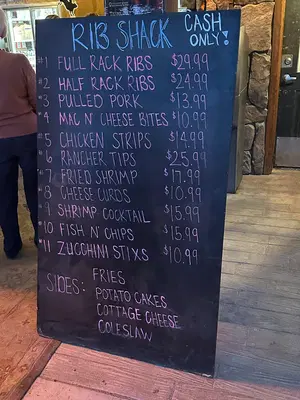 RIB SHACK CASH ONLY!
#1 FULL RACK RIBS $29.99
#2 HALF RACK RIBS $24.99
#3 PULLED PORK $13.99
#4 MAC N' CHEESE BITES $10.99
#5 CHICKEN STRIPS $14.99
#6 RANCHER TIPS $25.99
#7 FRIED SHRIMP $17.99
#8 CHEESE CURDS $10.99
#9 SHRIMP COCKTAIL $15.99
#10 FISH N' CHIPS $15.99
#11 ZUCCHINI STIXS $10.99
SIDES: FRIES
POTATO CAKES
COTTAGE CHEESE
COLESLAW